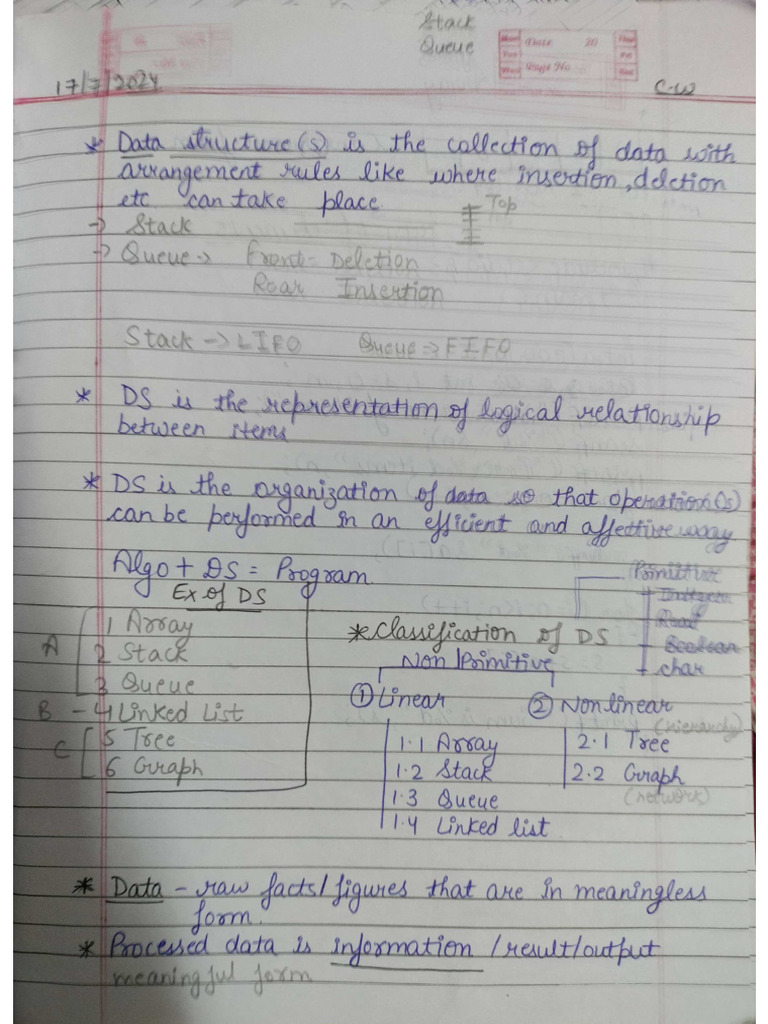 Stack
Queue
Date 20
Page No
17/7/2024
C-W
* Data structure(s) is the collection of data with
arrangement rules like where insertion, deletion
etc can take place
Top
→ Stack
→ Queue → Front - Deletion
Rear Insertion
Stack → LIFO Queue ⇒ FIFO
* DS is the representation of logical relationship
between items
* DS is the organization of data so that operation(s)
can be performed in an efficient and affective way
Algo + DS = Program
Ex of DS
A
1 Array
2 Stack
3 Queue
B - 4 Linked List
C
5 Tree
6 Graph
* Classification of DS
Primitive
Integer
Real
Boolean
char
Non Primitive
① Linear
② Non linear
(hierarchy)
1.1 Array
1.2 Stack
1.3 Queue
1.4 Linked list
2.1 Tree
2.2 Graph
(network)
* Data - raw facts/figures that are in meaningless
form.
* Processed data is information / result/output
meaningful form